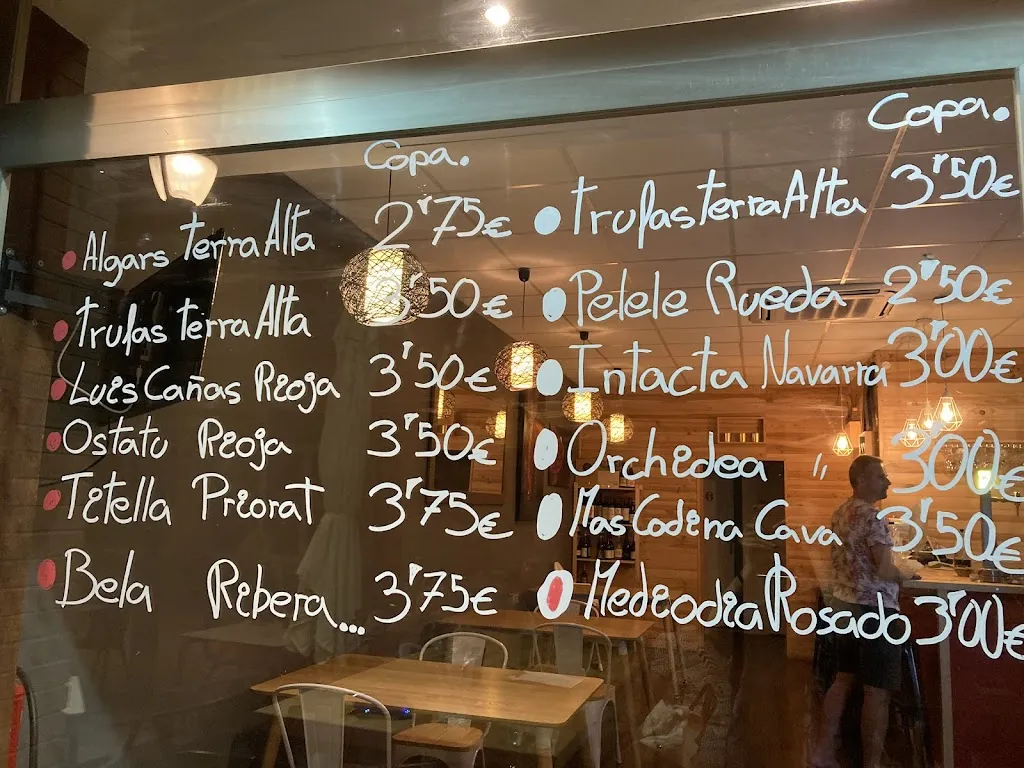 Copa.
Algars Terra Alta 2'75€
Trufas Terra Alta 3'50€
Luis Cañas Rioja 3'50€
Ostatu Rioja 3'50€
Titella Priorat 3'75€
Bela Ribera... 3'75€
Copa.
Trufas Terra Alta 3'50€
Petele Rueda 2'50€
Intacta Navarra 3'00€
Orchidea " 3'00€
Mas Codina Cava 3'50€
Mediodia Rosado 3'00€